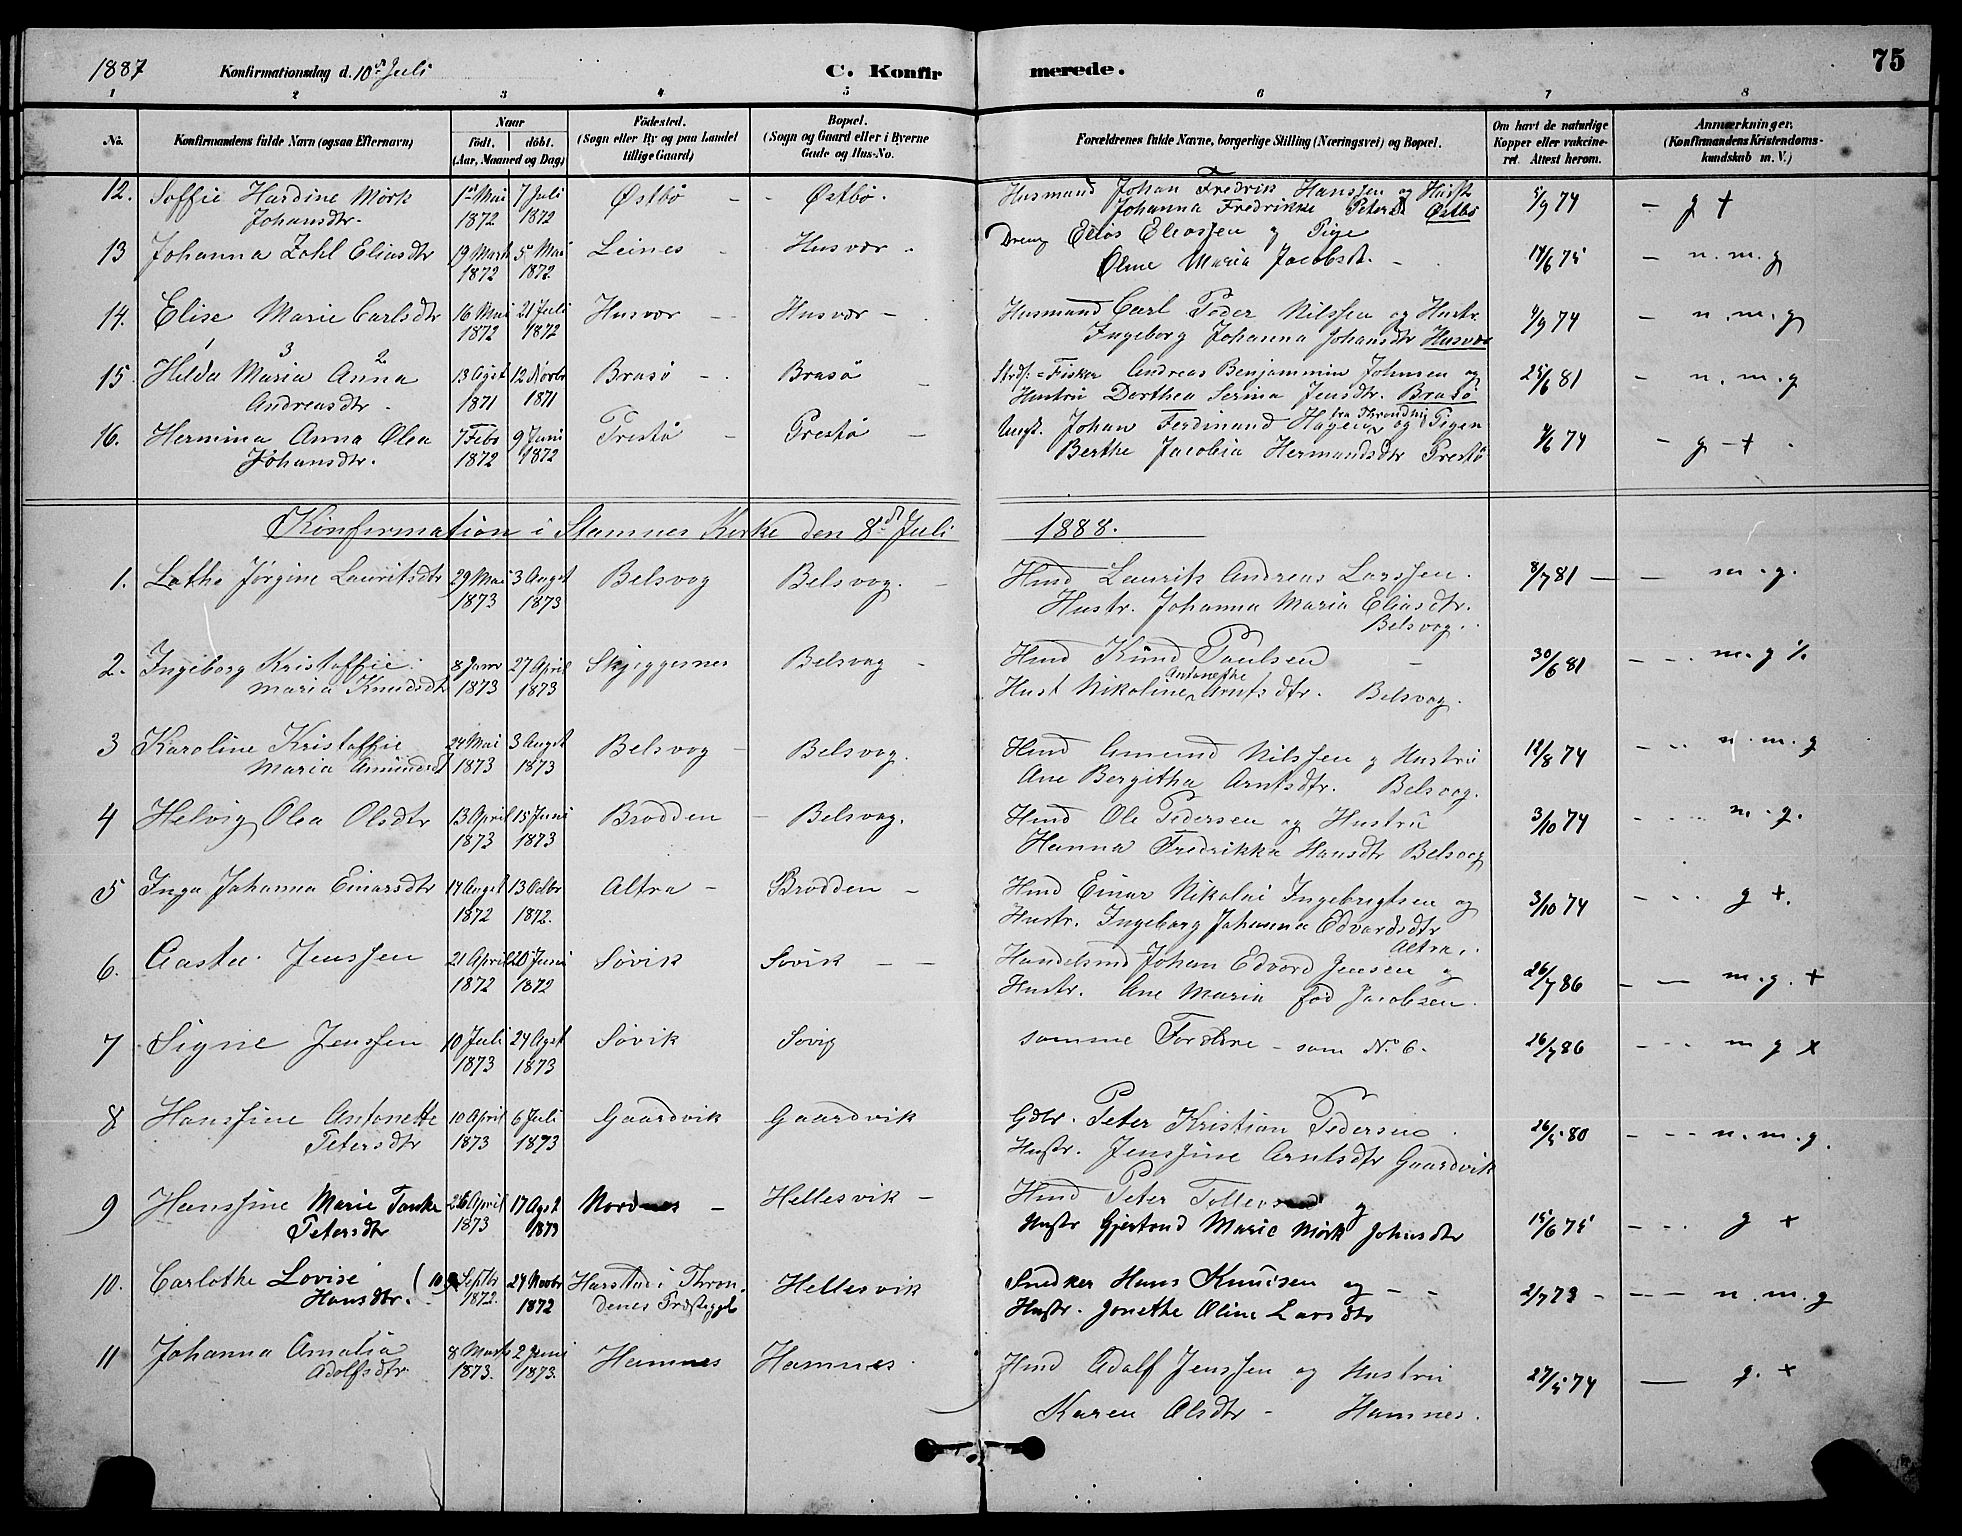 1887 Konfirmationsdag d. 10de Juli C. Konfirmerede. 75
1 2 3 4 5 6 7 8
No. Konfirmandens fulde Navn (ogsaa Efternavn) Naar født, døbt. (Aar, Maaned og Dag) Fødested. (Sogn eller By og paa Landet tillige Gaard) Bopæl. (Sogn og Gaard eller i Byerne Gade og Hus-No. Forældrenes fulde Navne, borgerlige Stilling (Næringsvei) og Bopæl. Om havt de naturlige Kopper eller vakcineret. Attest herom. Anmærkninger. (Konfirmandens Kristendomskundskab m. V.)
12. Soffie Hardine Mörk 1ste Mai 7 Juli Østbö - - Østbö. Husmand Johan Fredrik Hanssen og Hust 5/9 74 - g +
Johansdtr. 1872 1872 Johanna Fredrikke Petersd Østbö
13 Johanna Zahl Eliasdtr 19 Marts 5 Mai Leines - Husvær. Dreng Elias Eliassen og Pige 17/6 75 - n. m. g
1872 1872. Oline Maria Jacobsdt. -
14. Elise Marie Carlsdtr 16 Mai 21 Juli Husvær - Husvær - Husmand Carl Peder Nilssen og Hustr. 9/9 74 - n. m. g
1872 1872 Ingeborg Johanna Johansdtr Husvær
3 2
15. Hilda Maria Anna 13 Agst 12 Novbr Brasö - Brasö - Strds. = Fisker Andreas Benjammin Johnsen og 25/6 81 - n. m. g
Andreasdtr. 1871 1871 Hustru Dorthea Serina Jensdtr. Brasö
16. Hermina Anna Olea 7 Feb 9 Juni Prestö - Prestö - Ungk. Johan Ferdinand Hagen fra Throndhj og Pigen 4/6 74 - g - + .
Johansdtr. 1872 1872 Berthe Jacobia Hermandsdtr Prestö
Konfirmation i Stamnes Kirke den 8de Juli 1888.
1. Lothe Jørgine Lauritsdtr 29 Mai 3 Augst Belsvog Belsvog. - Hmd Laurits Andreas Larssen. 8/7 81 - - m. g.
1873 1873 Hustr. Johanna Maria Eliasdtr.
Belsvog.
2. Ingeborg Kristoffie 8 Janr 27 April Skjeggesnes Belsvog - Hmd Knud Paulsen - 30/6 81 - - . m. g %
Maria Knudsdtr 1873 1873 Hust Nikoline Antonethe Arntsdtr. Belsvog.
3 Karoline Kristoffie 24 Mai 3 Augst Belsvog - Belsvog. Hmd Amund Nilssen og Hustru 12/8 74 - .. n. m. g
Maria Amundsdt 1873 1873 Ane Bergitha Arntsdtr. Belsvog.
4 Helvig Olea Olsdtr 13 April 15 Juni Brodden - Belsvog. Hmd Ole Pedersen og Hustru 3/10 74 - . .. m. g.
1873 1873 Hanna Fredrikka Hansdtr Belsvog
5 Inga Johanna Einarsdtr 14 Augst 13 Octbr Altra - Brodden - Hmd Einar Nikolai Ingebrigtsen og 3/10 74 - . . g +.
1872 1872. Hustr. Ingeborg Johanna Edvardsdtr
Altra.
6. Aasta Jenssen 21 April 20 Juni Søvik Søvik - - Handelsmd Johan Edvard Jensen og 26/7 86 - - m. g. +
1872 1872 Hustr. Ane Maria fød Jacobsen.
7 Signe Jenssen 10 Juli 24 Agst Søvik Søvig samme Forældre - som No 6. 26/7 86 - . . m g x
1873 1873
8 Hanssine Antonette 10 April 6 Juli Gaardvik Gaardvik Gdbr. Peter Kristian Pedersen. 26/5 80 - - . n. m. g.
Petersdtr 1873 1873 Hustr. Jenssine Arntsdtr Gaardvik
9 Hanssine Marie Tanke 26 April 17 Agst Nordnes - Hellesvik - Hmd Peter Tollevsen og 15/6 75 - . . g +
Petersdtr 1873 1873 Hustr Gjertrud Marie Mørk Johnsdtr
10. Carlothe Lovise (10 Septbr 24 Novbr Harstad i Thron- Hellesvik Snedker Hans Knudsen og - - 2/7 73 - - - - n. m. g
Hansdtr. 1872. 1872 denes Præstegjld Hustr. Jonethe Oline Larsdtr
11 Johanna Amalia 8 Marts 2 Juni Hamnes Hamnes. Hmd Adolf Jenssen og Hustru 27/5 74 - g. +
Adolfsdtr 1873. 1873. Karen Olsdtr - Hamnes.